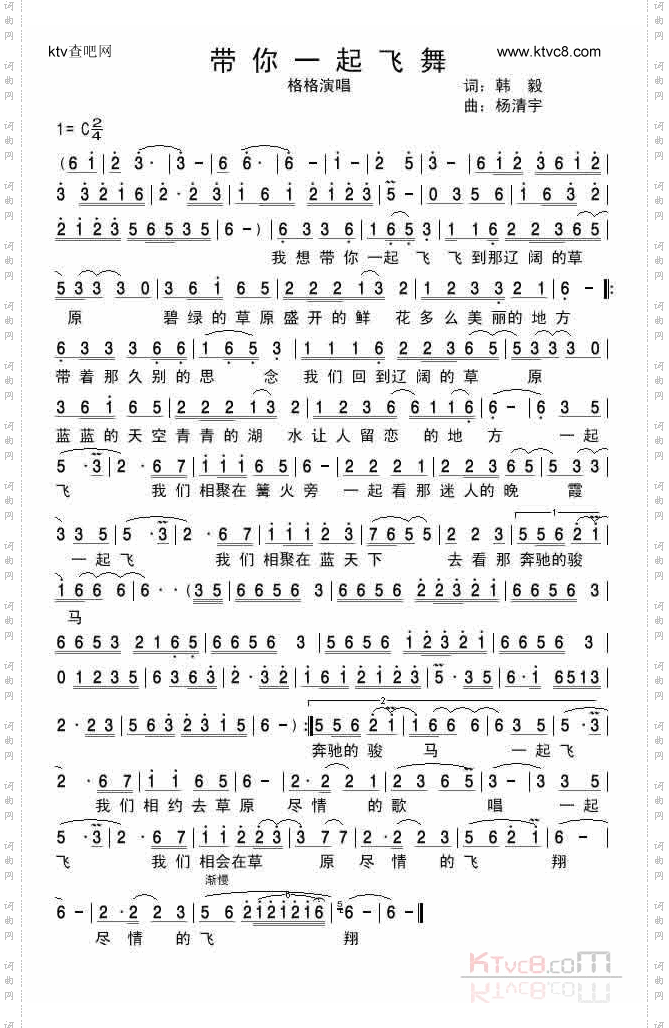 ktv查吧网
www.ktvc8.com
带你一起飞舞
格格演唱
词：韩 毅
曲：杨清宇
1= C 2/4
(6 i | 2 3· | 3 - | 6 6· | 6 - | i - | 2 5 | 3 - | 6 i 2 3 6 i 2 |
3 3 2 1 6 | 2 · 2 3 | 1 6 1 | 2 1 2 3 | 5 - | 0 3 5 6 | 1 6 3 2 |
2 1 2 3 5 6 5 3 5 | 6 - ) | 6 3 3 6 | 1 6 5 3 | 1 1 6 2 2 3 6 5 |
我想带你一起 飞 飞到那辽阔的草
5 3 3 3 0 | 3 6 i 6 5 | 2 2 2 1 3 2 | 1 2 2 3 3 2 1 | 6 - |:
原 碧绿的草原盛开的鲜 花多么美丽的地方
6 3 3 3 6 6 | 1 6 5 3 | 1 1 1 6 2 2 3 6 5 | 5 3 3 3 0 |
带着那久别的思 念 我们回到辽阔的草 原
3 6 i 6 5 | 2 2 2 1 3 2 | 1 2 3 6 6 1 1 6 | 6 - | 6 3 5 |
蓝蓝的天空青青的湖 水让人留恋 的地方 一起
5 · 3 | 2 · 6 7 | i i i 6 5 | 6 - | 2 2 2 1 | 2 2 3 6 5 | 5 3 3 |
飞 我们相聚在篝火旁 一起看那迷人的晚 霞
3 3 5 | 5 · 3 | 2 · 6 7 | i i i 2 3 | 7 6 5 5 | 2 2 3 | 5 5 6 2 i |
一起飞 我们相聚在蓝天下 去看那奔驰的骏
1
i 6 6 6 | 6 · · (3 5 | 6 6 5 6 3 | 6 6 5 6 5 6 | 6 6 5 6 3 |
马
6 6 5 3 2 1 6 5 | 6 6 5 6 3 | 6 6 5 6 5 | i 2 3 2 i | 6 6 5 6 3 |
0 1 2 3 5 | 6 3 6 3 | 2 · 3 2 | 1 6 1 2 1 2 3 | 5 · 3 5 | 6 · i 6 5 1 3 |
2
2 · 2 3 | 5 6 3 2 2 3 1 5 | 6 - ) :| 5 5 6 2 i | i 6 6 6 | 6 3 5 | 5 · 3 |
奔驰的骏 马 一起飞
2 · 6 7 | i i 6 5 | 3 - | 2 · 2 | 2 3 6 5 | 3 - | 3 3 5 |
我们相约去草原 尽情 的歌 唱 一起
5 · 3 | 2 · 6 7 | i i 2 2 3 | 3 7 7 | 2 · 2 2 3 | 5 6 2 i | 6 - |
飞 我们相会在草 原 尽情的飞 翔
渐慢
6 - | 2 · 2 2 3 | 5 6 2 1 2 1 2 1 6 | 6 - | 6 - |
尽情 的飞 翔
KTvc8.com